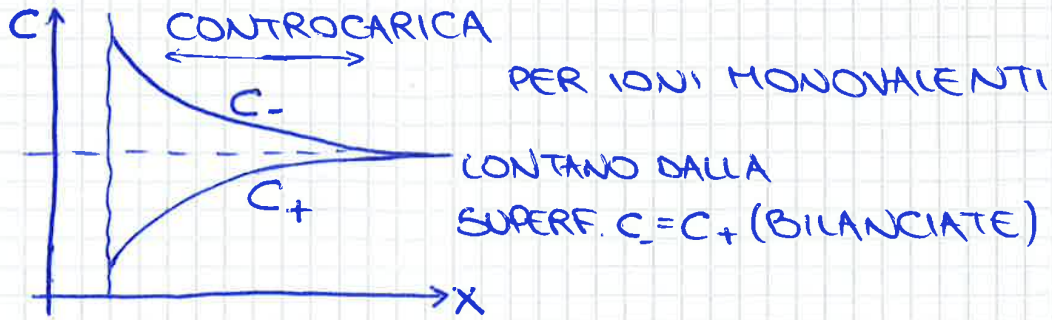 C
CONTROCARICA
PER IONI MONOVALENTI
C-
LONTANO DALLA
C+
SUPERF. C-=C+ (BILANCIATE)
X